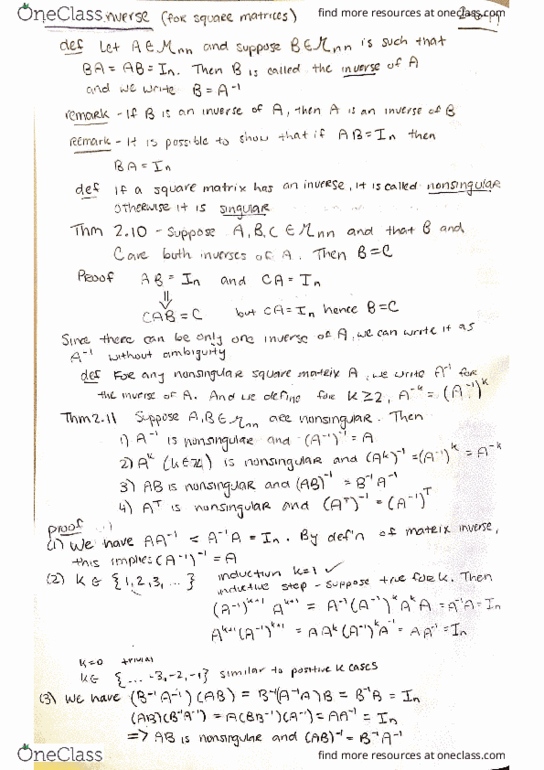 OneClass
find more resources at oneclass.com
Inverse (for square matrices)
def Let A ∈ Mnn and suppose B ∈ Mnn is such that
BA = AB = In. Then B is called the inverse of A
and we write B = A⁻¹
remark - If B is an inverse of A, then A is an inverse of B
remark - It is possible to show that if AB = In then
BA = In
def If a square matrix has an inverse, it is called nonsingular
otherwise it is singular
Thm 2.10 - Suppose A, B, C ∈ Mnn and that B and
C are both inverses of A. Then B = C
Proof AB = In and CA = In
⇓
CAB = C but CA = In hence B = C
Since there can be only one inverse of A, we can write it as
A⁻¹ without ambiguity
def For any nonsingular square matrix A, we write A⁻¹ for
the inverse of A. And we define for k ≥ 2, A⁻ᵏ = (A⁻¹)ᵏ
Thm 2.11 Suppose A, B ∈ Mnn are nonsingular. Then
1) A⁻¹ is nonsingular and (A⁻¹)⁻¹ = A
2) Aᵏ (k ∈ ℤ) is nonsingular and (Aᵏ)⁻¹ = (A⁻¹)ᵏ = A⁻ᵏ
3) AB is nonsingular and (AB)⁻¹ = B⁻¹A⁻¹
4) Aᵀ is nonsingular and (Aᵀ)⁻¹ = (A⁻¹)ᵀ
Proof
(1) We have AA⁻¹ = A⁻¹A = In. By def'n of matrix inverse,
this implies (A⁻¹)⁻¹ = A
(2) k ∈ {1, 2, 3, ...} induction k=1 ✓
inductive step - suppose true for k. Then
(A⁻¹)ᵏ⁺¹ Aᵏ⁺¹ = A⁻¹(A⁻¹)ᵏAᵏA = A⁻¹A = In
Aᵏ⁺¹(A⁻¹)ᵏ⁺¹ = AAᵏ(A⁻¹)ᵏA⁻¹ = AA⁻¹ = In
k=0 trivial
k ∈ {... -3, -2, -1} similar to positive k cases
(3) We have (B⁻¹A⁻¹)(AB) = B⁻¹(A⁻¹A)B = B⁻¹B = In
(AB)(B⁻¹A⁻¹) = A(BB⁻¹)(A⁻¹) = AA⁻¹ = In
=> AB is nonsingular and (AB)⁻¹ = B⁻¹A⁻¹
OneClass
find more resources at oneclass.com